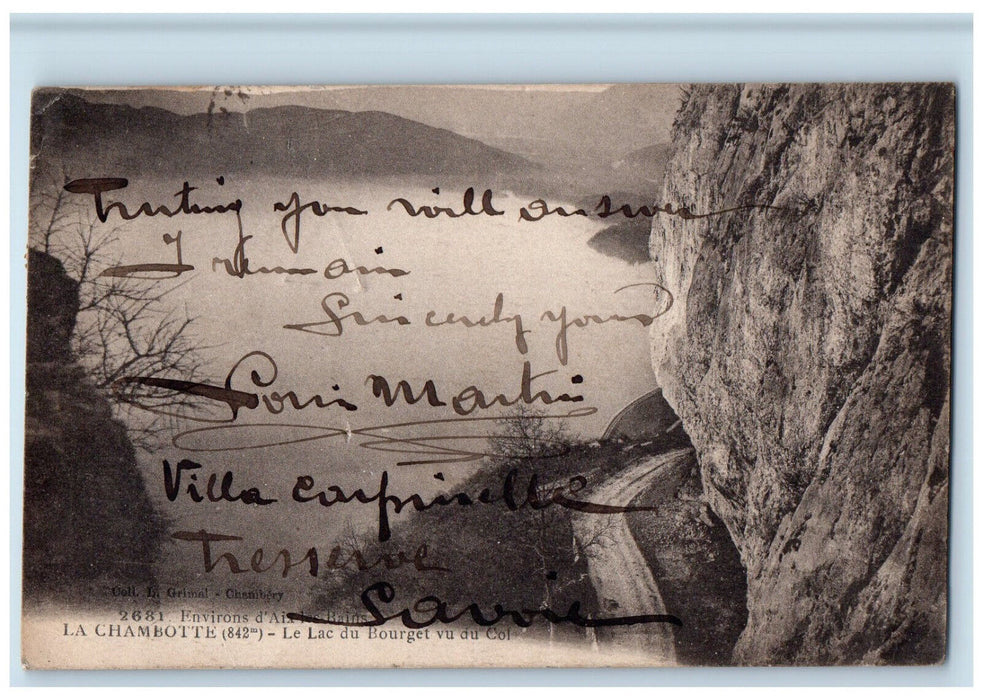 Trusting you will answer
I remain
Sincerely yours
Louis Martin
Villa carpinelle
Tresserve
Savoie
Coll. L. Grimal - Chambéry
2681. Environs d'Aix-les-Bains
LA CHAMBOTTE (842m) - Le Lac du Bourget vu du Col